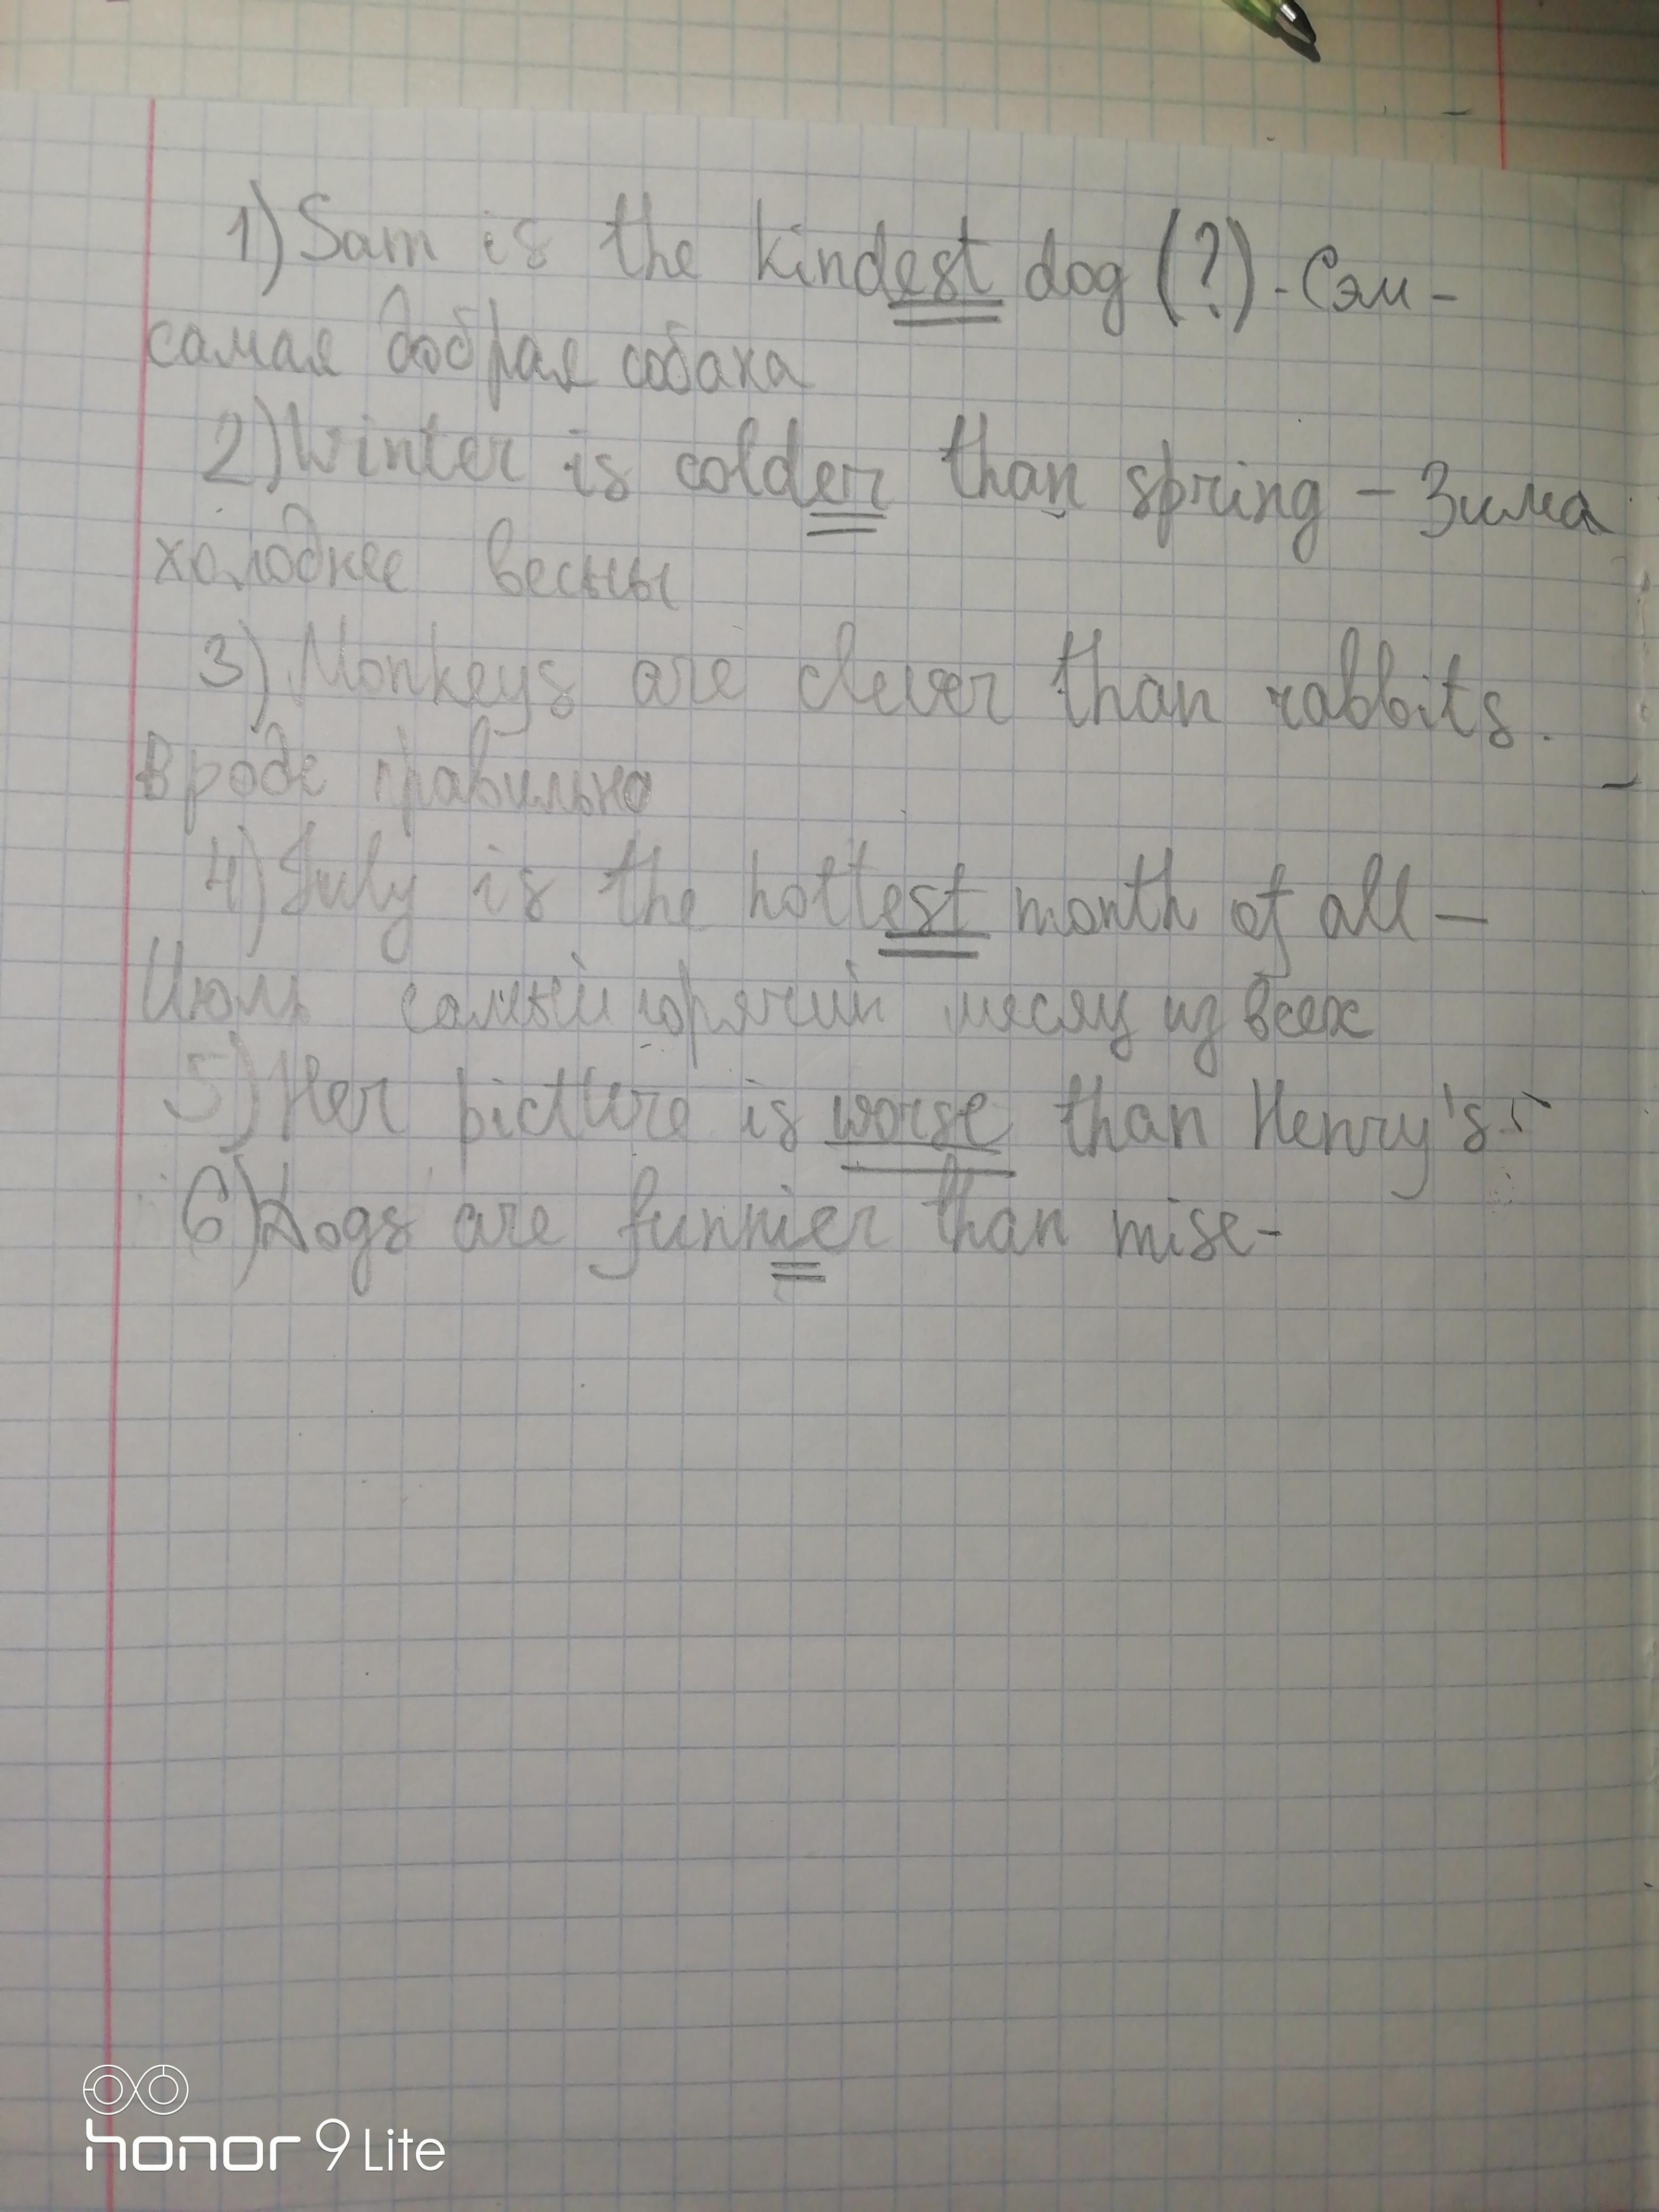 1) Sam is the kindest dog (?) - Сэм -
самая добрая собака
2) Winter is colder than spring - Зима
холоднее весны
3) Monkeys are clever than rabbits.
вроде правильно
4) July is the hottest month of all -
Июль самый горячий месяц из всех
5) Her picture is worse than Henry's -
6) Dogs are funnier than mise -
honor 9 Lite